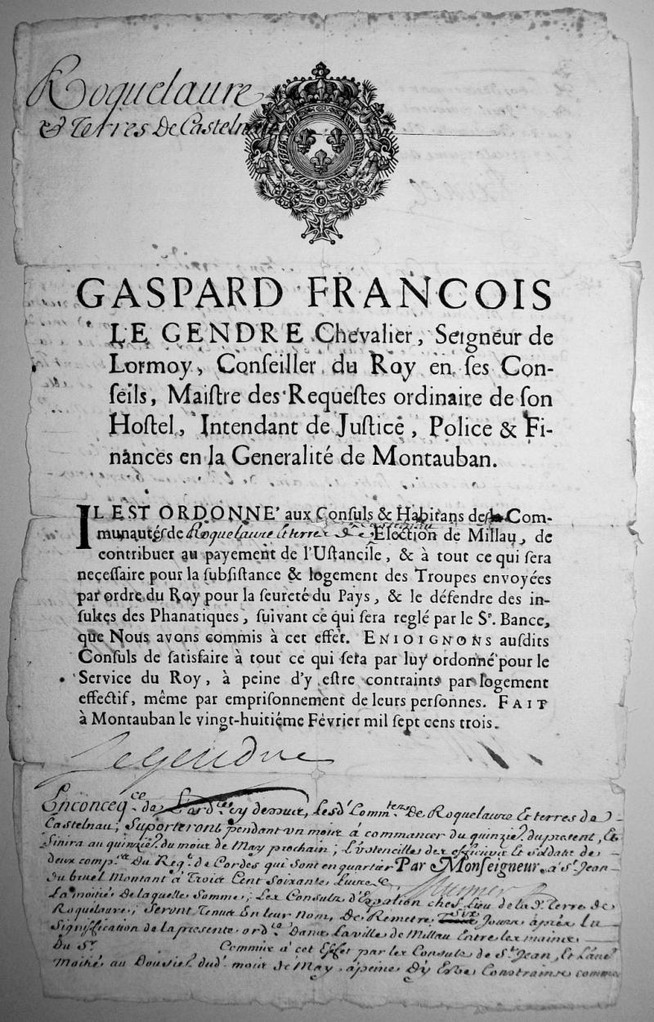 Roquelaure
& Terres De Castelnau
GASPARD FRANCOIS
LE GENDRE Chevalier, Seigneur de
Lormoy, Conseiller du Roy en ses Con-
seils, Maistre des Requestes ordinaire de son
Hostel, Intendant de Justice, Police & Fi-
nances en la Generalité de Montauban.
IL EST ORDONNE' aux Consuls & Habitans des Com-
munautés de Roquelaure & terres De Castelnau Election de Millau, de
contribuer au payement de l'Ustancile, & à tout ce qui sera
necessaire pour la subsistance & logement des Troupes envoyées
par ordre du Roy pour la seureté du Pays, & le défendre des in-
sultes des Phanatiques, suivant ce qui sera reglé par le Sr. Bance,
que Nous avons commis à cet effet. ENIOIGNONS ausdits
Consuls de satisfaire à tout ce qui sera par luy ordonné pour le
Service du Roy, à peine d'y estre contraints par logement
effectif, même par emprisonnement de leurs personnes. FAIT
à Montauban le vingt-huitiéme Février mil sept cens trois.
Legendre
En conceq.ce de L'ord.ce cy dessus, Lesd. Comm.tez De Roquelaure Et terres de
Castelnau; Suporteront pendant un mois à commancer du quinzie. du present, Et
finira au quinzie. du mois de May prochain; L'ustencille des Et soldats de
deux comp.es Du Reg.t de Cordes qui sont en quartier Par Monseigneur à St. Jean
du bruel Montant à Trois Cent Soixante Livres
La moitié De laquelle Somme; Les Consuls d'Espalion chef Lieu de la d. Terre de
Roquelaure; Seront Tenus En leur nom, De Remetre Six Jours après La
Signiffication de la presente ord.ce Dans La ville de Millau Entre les mains
du Sr. Commis à cet Effet par les Consuls de St. Jean, Et L'autre
Moitié au Dousie. dud. mois de May, à peine D'y Estre Constrains comme